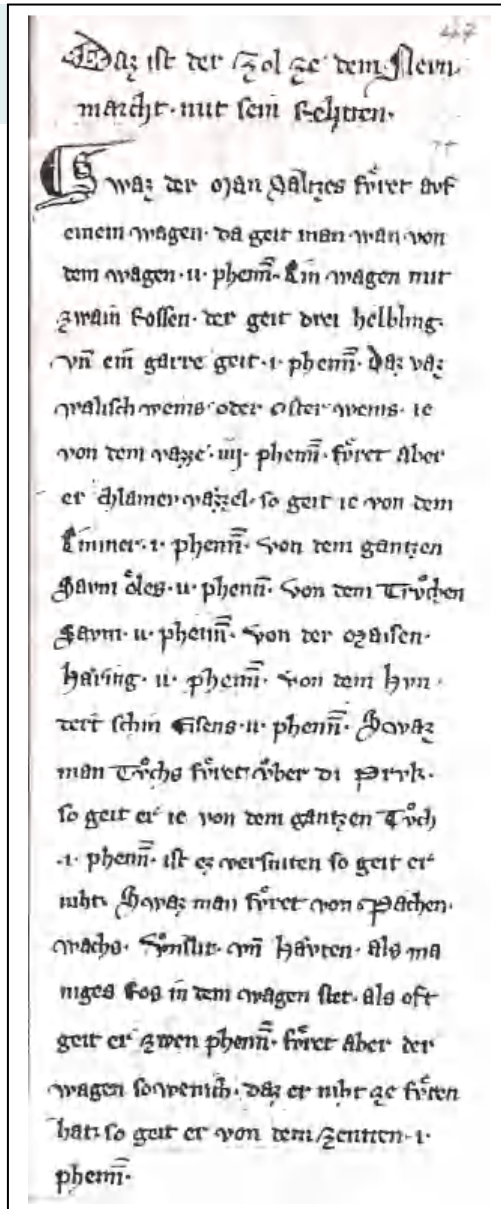 47
Daz ist der Zol ze dem Newn
marcht· mit sein Rehten·
Swaz der man Saltzes fůret auf
einem wagen· da geit man wan von
dem wagen· ii· phenñ· Ein wagen mit
zwain Rossen· der geit drei helbling·
vñ ein garre geit ·i· phenñ· Daz vaz
walisch weins· oder Oster weins· ie
von dem vazze· iiij· phenñ· fůret aber
er chlainev vazzel· so geit ie von dem
Emmer· i· phenñ· von dem gantzen
Savm öles· ii· phenñ· von dem Trvchen
Savm· ii· phenñ· von der maisen·
Häring· ii· phenñ· von dem Hvn
dert schin Eisens· ii· phenñ· Swaz
man Tůchs fůret vber di Prvk·
so geit er ie von dem gantzen Tůch
·i· phenñ· ist ez versniten so geit er
niht· Swaz man fůret von Pachen·
wachs· vnslit· vñ Häuten· als ma
niges Ros in dem wagen stet· als oft
geit er zwen phenñ· fůret aber der
wagen so wenich· daz er niht ze fůren
hat· so geit er von dem Zenten· i·
phenñ·